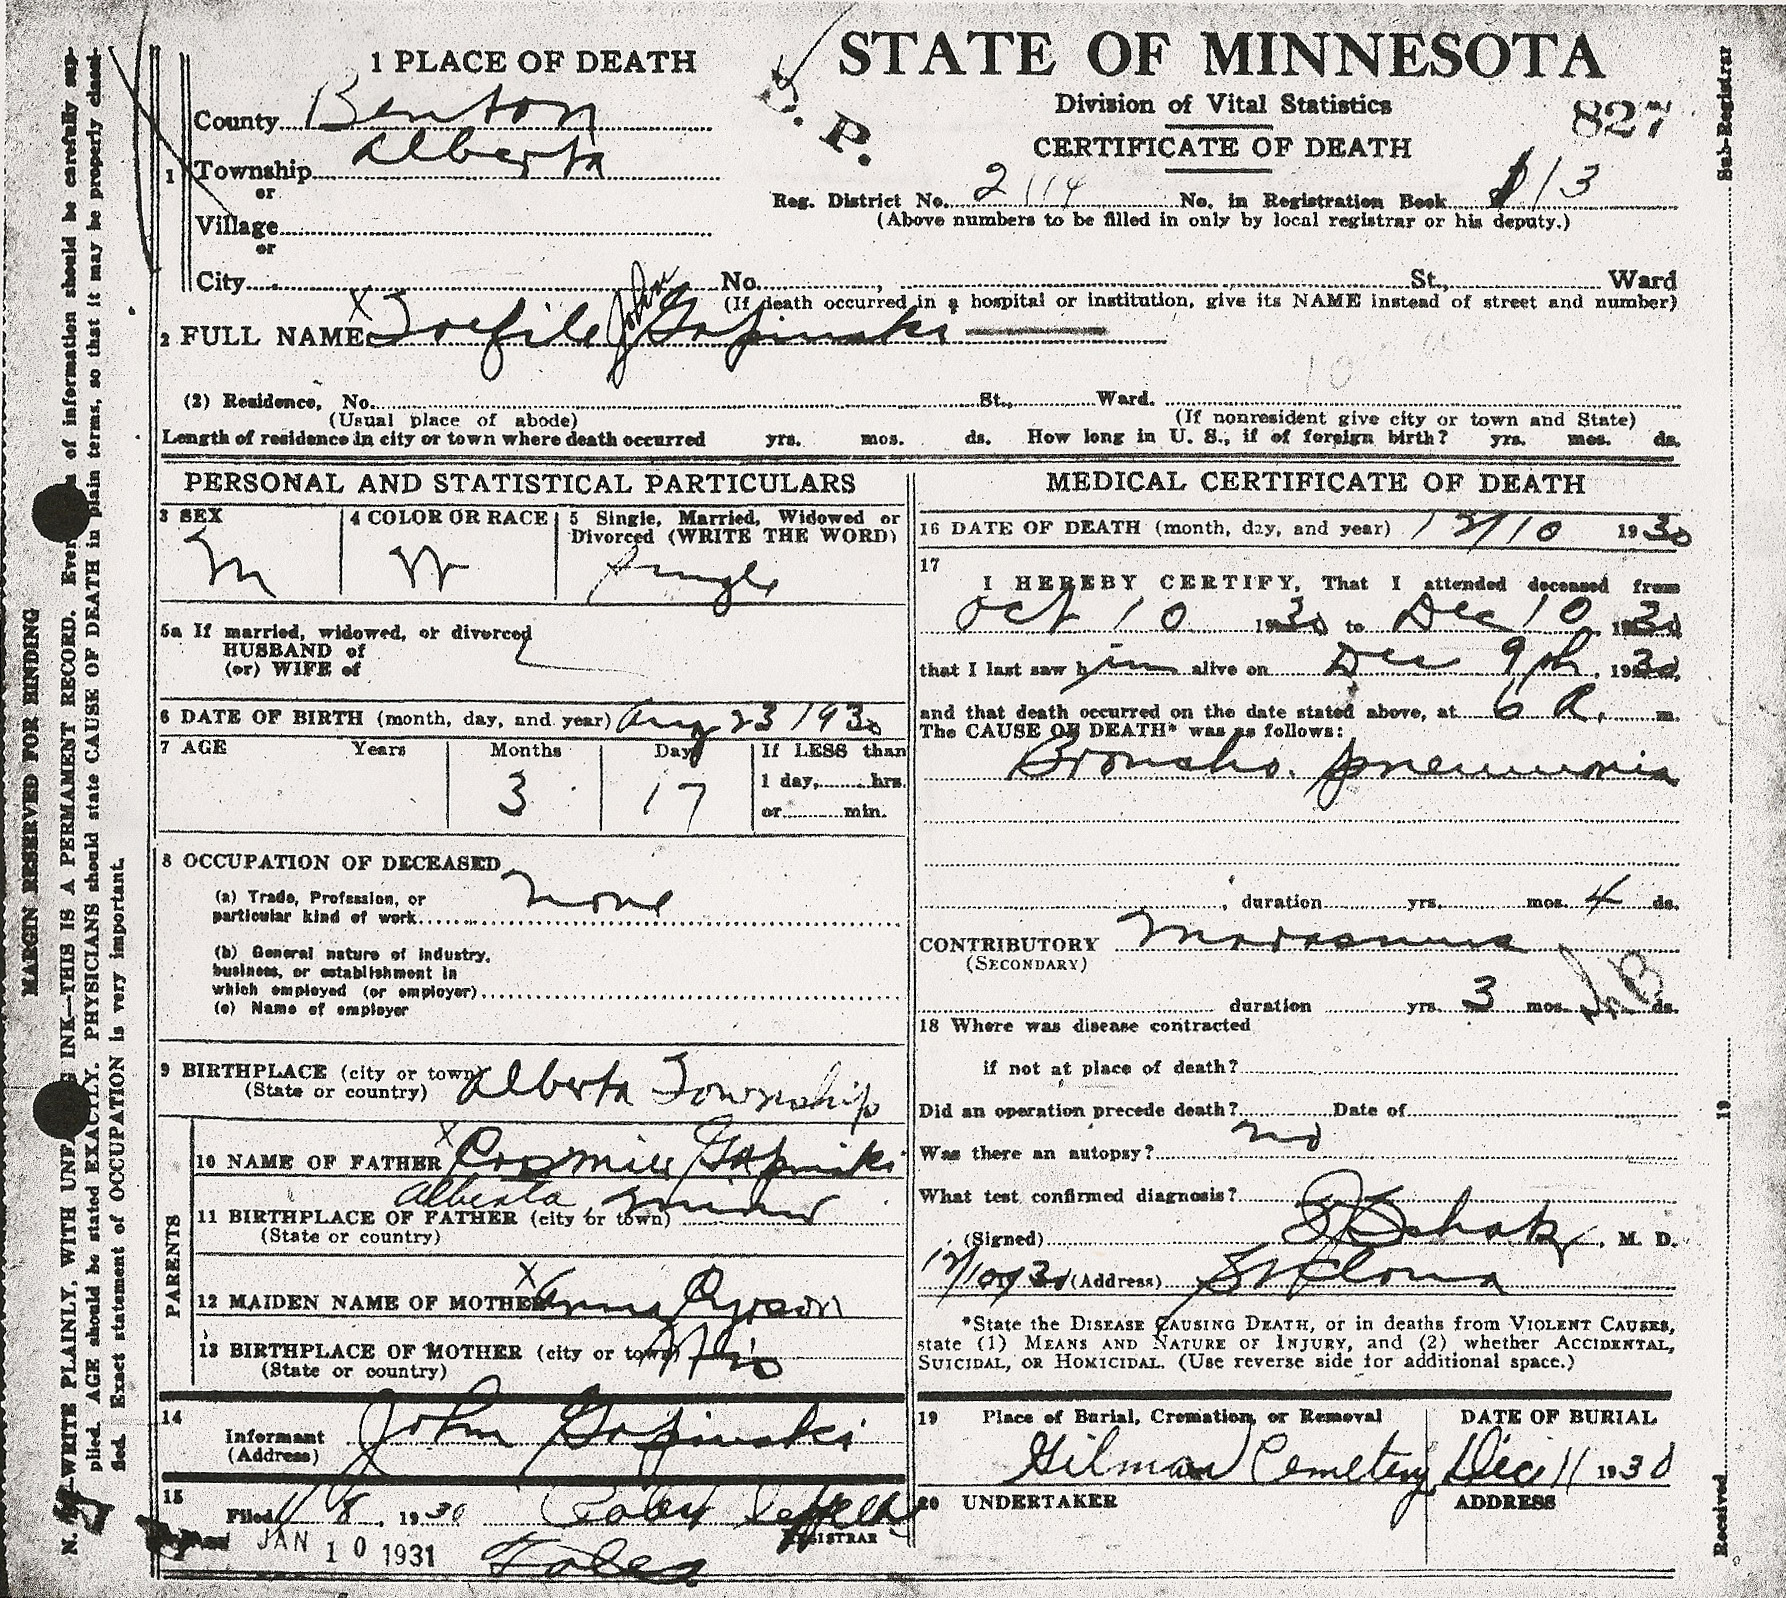 1 PLACE OF DEATH
County Benton
Township Alberta
or
Village
or
City No. St., Ward
(If death occurred in a hospital or institution, give its NAME instead of street and number)
S. P.
STATE OF MINNESOTA
Division of Vital Statistics
827
CERTIFICATE OF DEATH
Reg. District No. 2114 No. in Registration Book 113
(Above numbers to be filled in only by local registrar or his deputy.)
1
2 FULL NAME Toefile John Gapinski
10
(2) Residence, No. St., Ward.
(Usual place of abode) (If nonresident give city or town and State)
Length of residence in city or town where death occurred yrs. mos. ds. How long in U. S., if of foreign birth? yrs. mos. ds.
PERSONAL AND STATISTICAL PARTICULARS
3 SEX
M
4 COLOR OR RACE
W
5 Single, Married, Widowed or
Divorced (WRITE THE WORD)
Single
5a If married, widowed, or divorced
HUSBAND of
(or) WIFE of
6 DATE OF BIRTH (month, day, and year) Aug 23 1930
7 AGE Years Months Days If LESS than
3 17 1 day, hrs.
or min.
8 OCCUPATION OF DECEASED
(a) Trade, Profession, or
particular kind of work None
(b) General nature of industry,
business, or establishment in
which employed (or employer)
(c) Name of employer
9 BIRTHPLACE (city or town) Alberta Township
(State or country)
PARENTS
10 NAME OF FATHER Gapinski
11 BIRTHPLACE OF FATHER (city or town) Alberta Minn
(State or country)
12 MAIDEN NAME OF MOTHER Anna
13 BIRTHPLACE OF MOTHER (city or town)
(State or country)
14
Informant John Gapinski
(Address)
15
Filed 1/8, 1930
REGISTRAR
JAN 10 1931
Foley
MEDICAL CERTIFICATE OF DEATH
16 DATE OF DEATH (month, day, and year) 12/10 1930
17
I HEREBY CERTIFY, That I attended deceased from
Oct 10 1930 to Dec 10 1930
that I last saw him alive on Dec 9th, 1930,
and that death occurred on the date stated above, at 6 A. m.
The CAUSE OF DEATH* was as follows:
Broncho. pneumonia
duration yrs. mos. 4 ds.
CONTRIBUTORY Marasmus
(SECONDARY)
duration yrs. 3 mos. ds.
18 Where was disease contracted
if not at place of death?
Did an operation precede death? Date of
Was there an autopsy? no
What test confirmed diagnosis?
(Signed) M. D.
12/10/30 (Address) St Cloud
*State the DISEASE CAUSING DEATH, or in deaths from VIOLENT CAUSES,
state (1) MEANS AND NATURE OF INJURY, and (2) whether ACCIDENTAL,
SUICIDAL, OR HOMICIDAL. (Use reverse side for additional space.)
19 Place of Burial, Cremation, or Removal DATE OF BURIAL
Gilman Cemetery Dec 11 1930
20 UNDERTAKER ADDRESS
MARGIN RESERVED FOR BINDING
N. B.—WRITE PLAINLY, WITH INK—THIS IS A PERMAMENT RECORD. of information should be carefully sup-
plied. AGE should be stated EXACTLY. PHYSICIANS should state CAUSE OF DEATH in plain terms, so that it may be properly classi-
fied. Exact statement of OCCUPATION is very important.
Received 19 Sub-Registrar